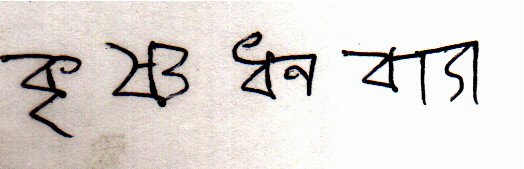 কৃষ্ণ ধন বাগ